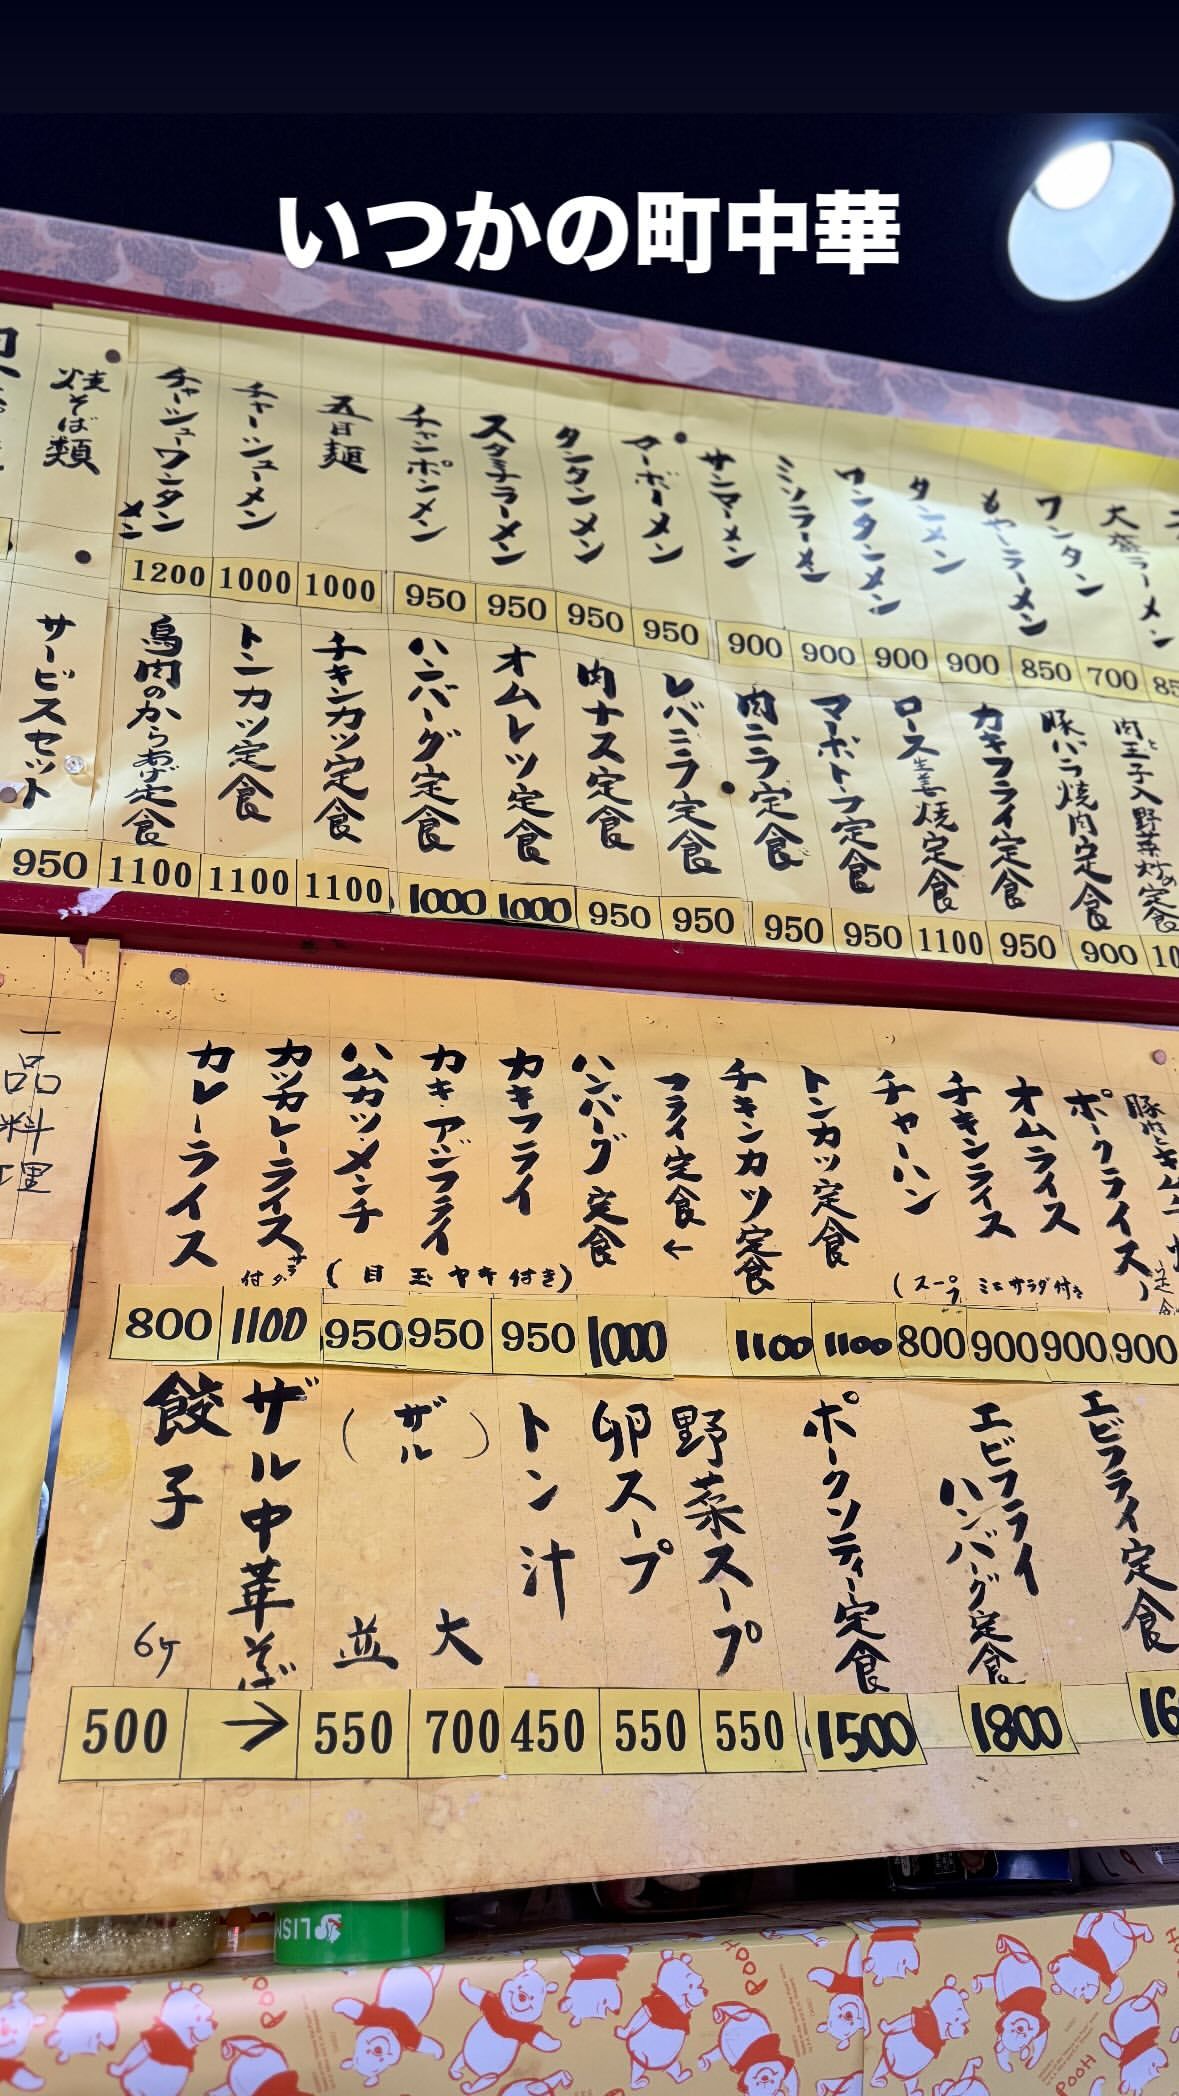 いつかの町中華
大盛ラーメン
ワンタン
もやしラーメン
タンメン
ワンタンメン
ミソラーメン
サンマーメン
マーボーメン
タンタンメン
スタミナラーメン
チャンポンメン
五目麺
チャーシューメン
チャーシューワンタンメン
焼そば類
1200 1000 1000 950 950 950 950 900 900 900 900 850 700 85
肉と玉子入野菜炒め定食
豚バラ焼肉定食
カキフライ定食
ロース生姜焼定食
マーボトーフ定食
肉ニラ定食
レバニラ定食
肉ナス定食
オムレツ定食
ハンバーグ定食
チキンカツ定食
トンカツ定食
鳥肉のからあげ定食
サービスセット
950 1100 1100 1100 1000 1000 950 950 950 950 1100 950 900 10
ポークライス
オムライス
チキンライス
チャーハン
(スープ ミニサラダ付き)
トンカツ定食
チキンカツ定食
フライ定食←
ハンバーグ定食
カキフライ
カキ・アジフライ
ハムカツ・メンチ
(目玉ヤキ付き)
カツカレーライス
サラダ付
カレーライス
一品料理
800 1100 950 950 950 1000 1100 1100 800 900 900 900
エビフライ定食
エビフライ
ハンバーグ定食
ポークソティー定食
野菜スープ
卵スープ
トン汁
(ザル)
大
並
ザル中華そば
餃子 6ヶ
500 → 550 700 450 550 550 1500 1800 16
POOH
POOH
POOH